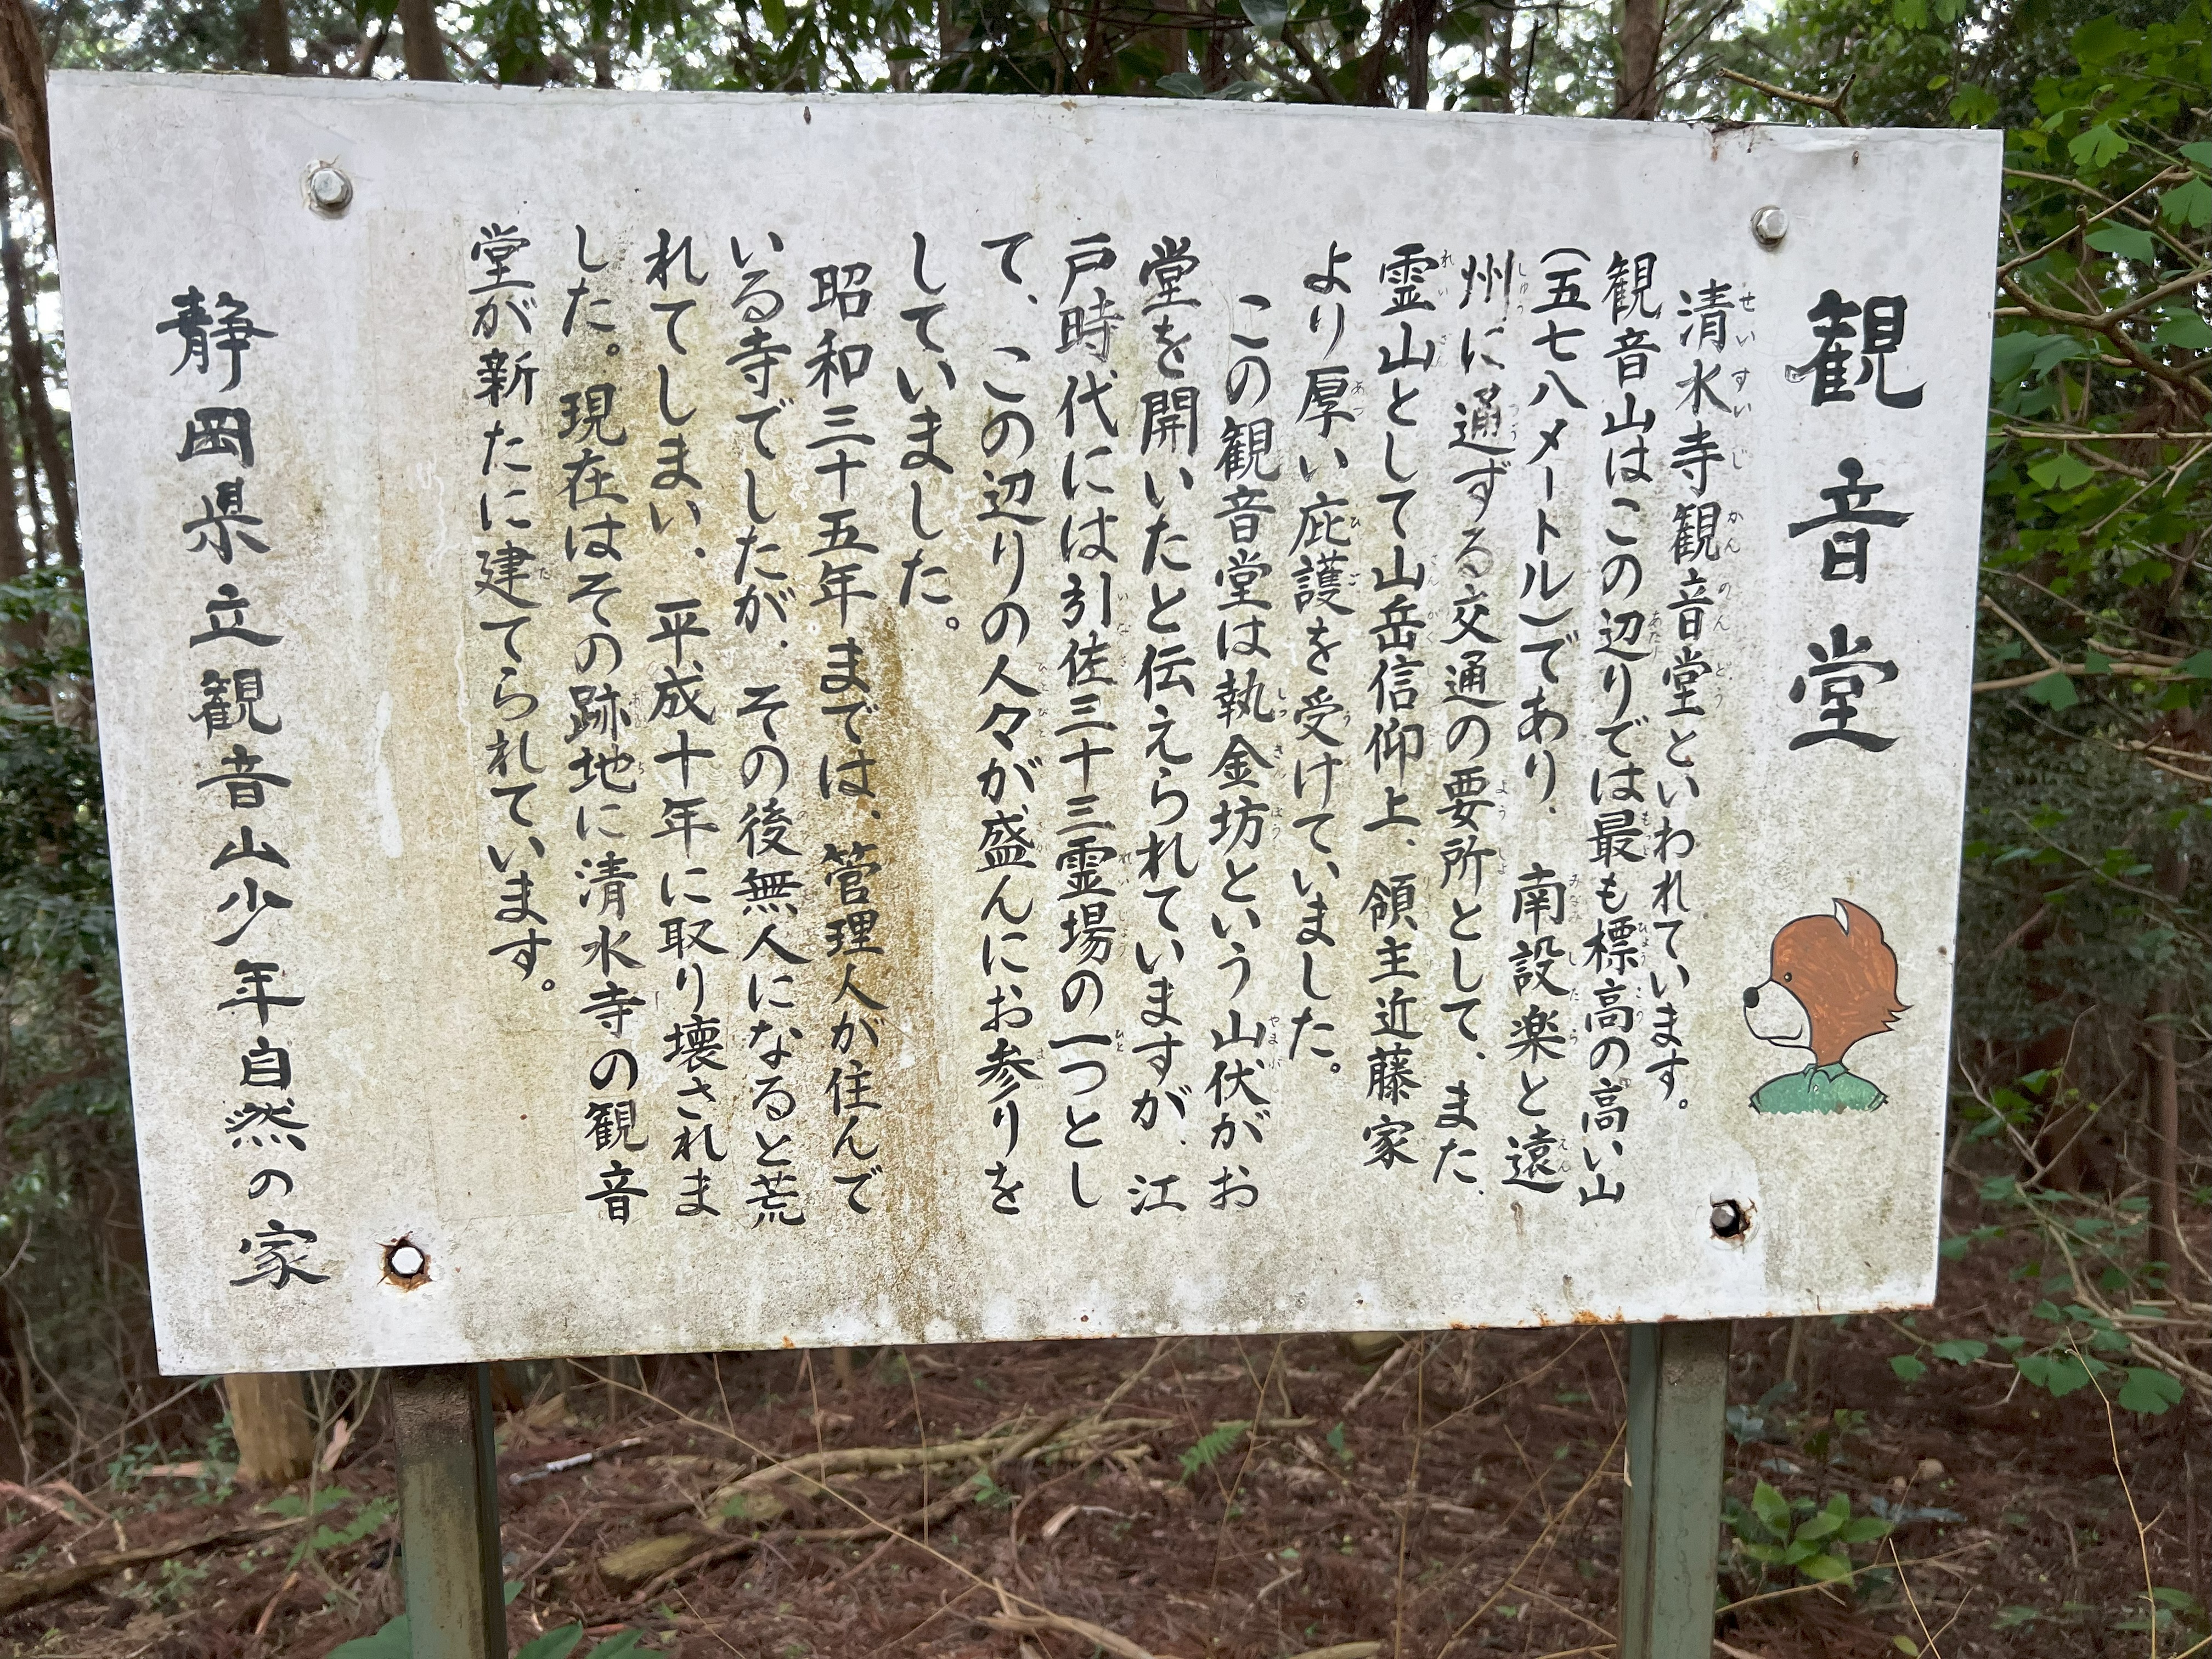 観音堂
清水寺観音堂といわれています。
観音山はこの辺りでは最も標高の高い山
(五七八メートル)であり、南設楽と遠
州に通ずる交通の要所として、また、
霊山として山岳信仰上、領主近藤家
より厚い庇護を受けていました。
この観音堂は執金坊という山伏がお
堂を開いたと伝えられていますが、江
戸時代には引佐三十三霊場の一つとし
て、この辺りの人々が盛んにお参りを
していました。
昭和三十五年までは、管理人が住んで
いる寺でしたが、その後無人になると荒
れてしまい、平成十年に取り壊されま
した。現在はその跡地に清水寺の観音
堂が新たに建てられています。
静岡県立観音山少年自然の家